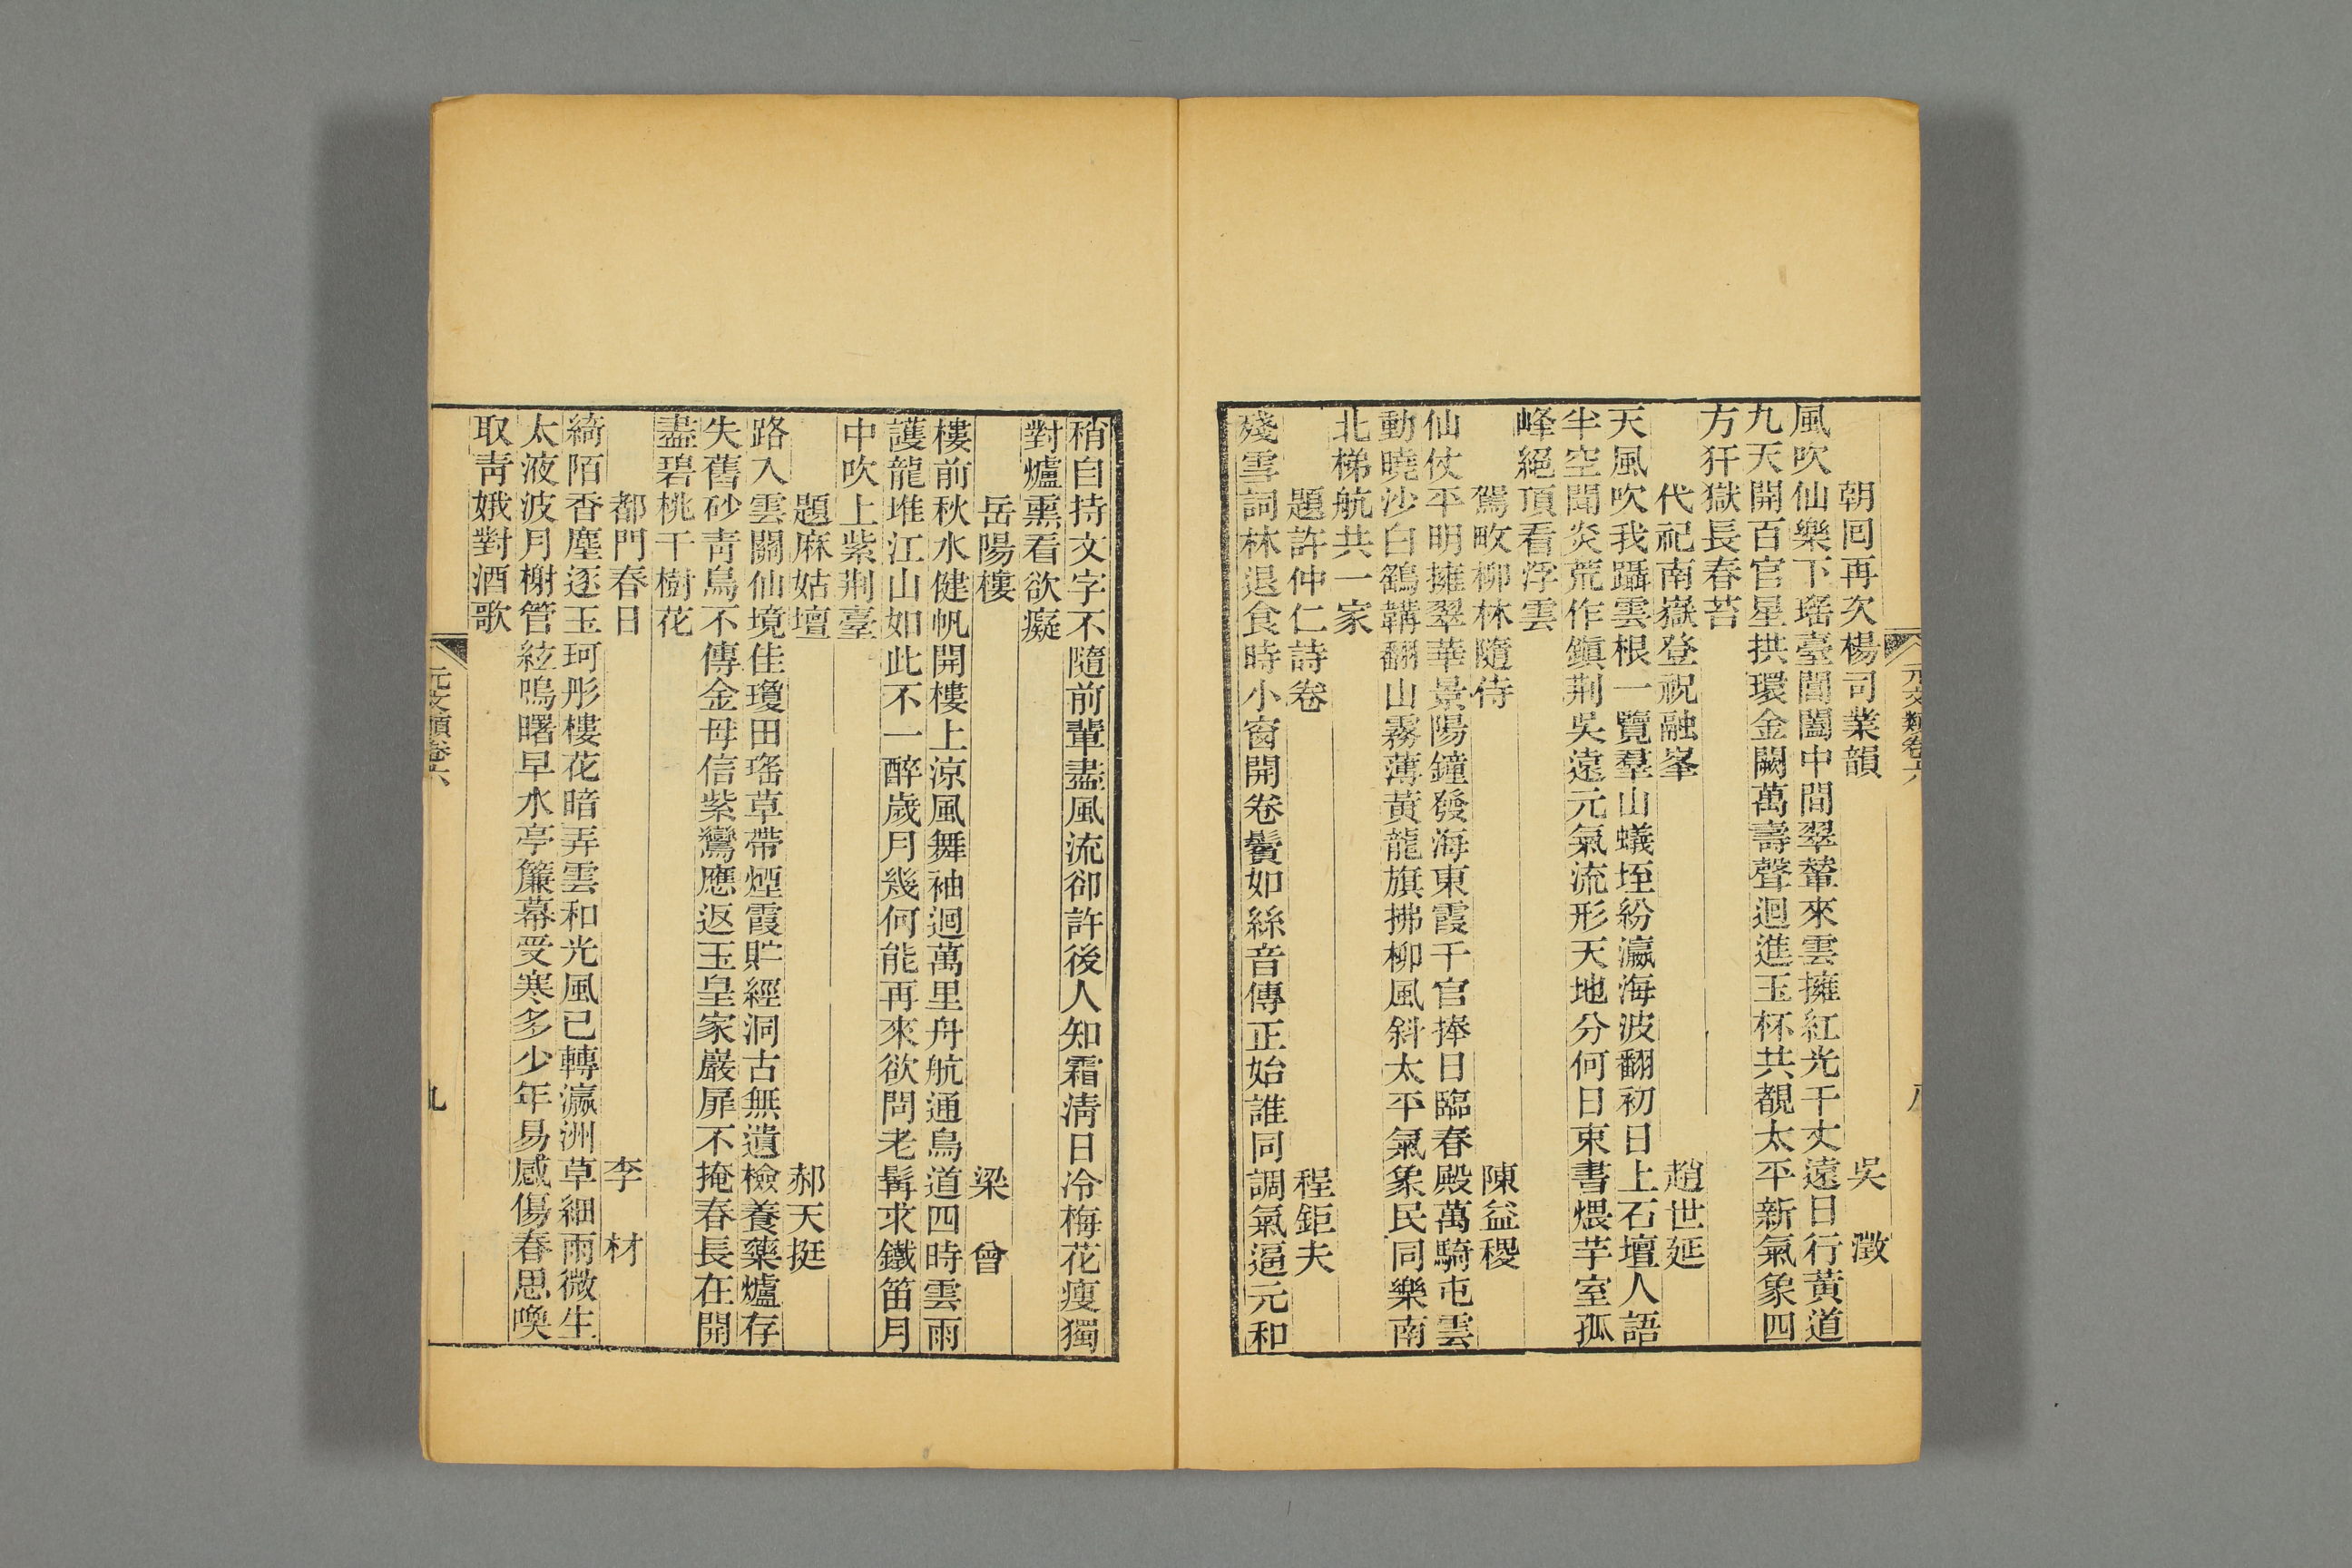 元文類卷六
八
朝回再次楊司業韻 吳 澂
風吹仙樂下瑤臺閶闔中間翠輦來雲擁紅光千丈遠日行黃道
九天開百官星拱環金闕萬壽聲迴進玉杯共覩太平新氣象四
方犴獄長春苔
代祀南嶽登祝融峯 趙世延
天風吹我躡雲根一覽羣山蟻垤紛瀛海波翻初日上石壇人語
半空聞炎荒作鎮荆吳遠元氣流形天地分何日束書煨芋室孤
峰絕頂看浮雲
駕畋柳林隨侍 陳益稷
仙仗平明擁翠華景陽鐘發海東霞千官捧日臨春殿萬騎屯雲
動曉沙白鶴韝翻山霧薄黃龍旗拂柳風斜太平氣象民同樂南
北梯航共一家
題許仲仁詩卷 程鉅夫
殘雪詞林退食時小窗開卷鬢如絲音傳正始誰同調氣逼元和
稍自持文字不隨前輩盡風流卻許後人知霜清日冷梅花瘦獨
對爐熏看欲癡
岳陽樓 梁 曾
樓前秋水健帆開樓上涼風舞袖迴萬里舟航通鳥道四時雲雨
護龍堆江山如此不一醉歲月幾何能再來欲問老髯求鐵笛月
中吹上紫荆臺
題麻姑壇 郝天挺
路入雲關仙境佳瓊田瑤草帶煙霞貯經洞古無遺檢養藥爐存
失舊砂靑鳥不傳金母信紫鸞應返玉皇家巖扉不掩春長在開
盡碧桃千樹花
都門春日 李 材
綺陌香塵逐玉珂彤樓花暗弄雲和光風已轉瀛洲草細雨微生
太液波月榭管絃鳴曙早水亭簾幕受寒多少年易感傷春思喚
取靑娥對酒歌
元文類卷六
九